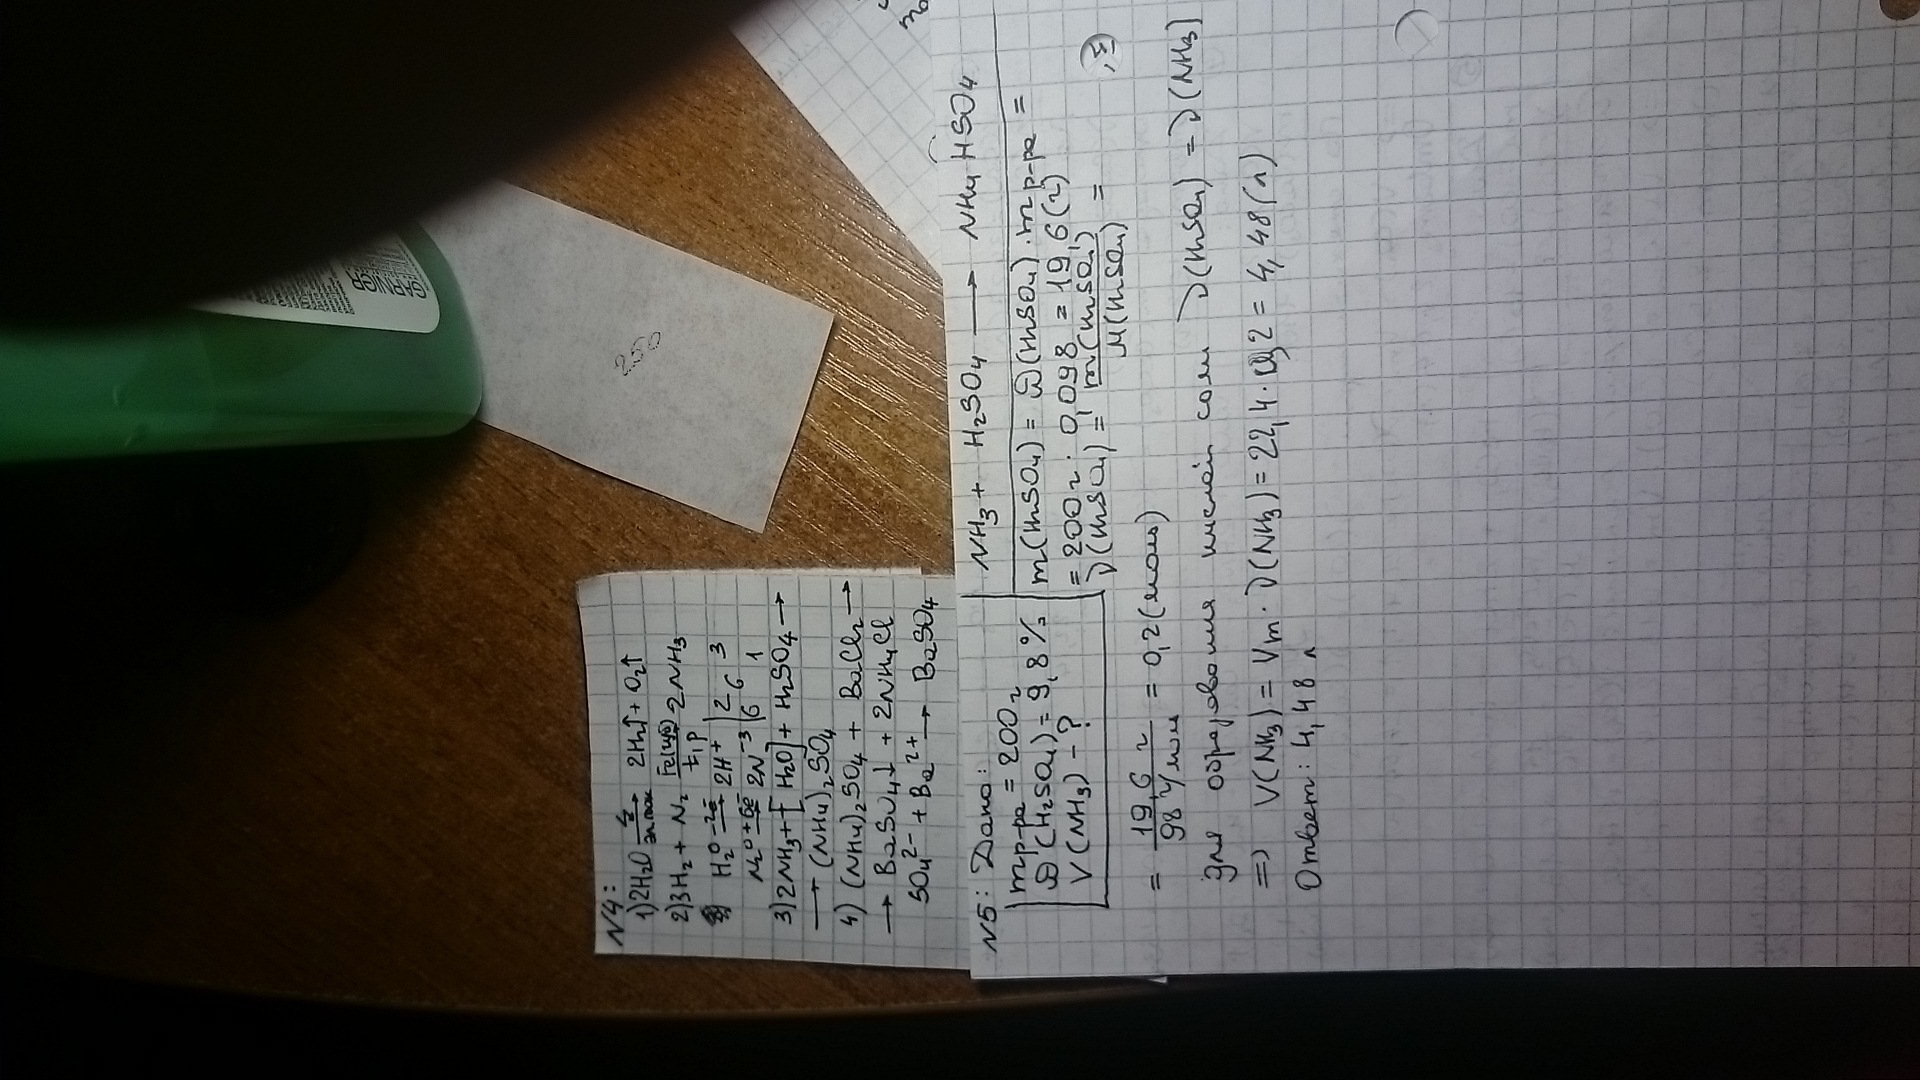 N4:
1) 2H2O эл. ток → 2H2↑ + O2↑
2) 3H2 + N2 Fe(кат) t, p 2NH3
H2O -2e → 2H+ | 2 6 3
N2O +6e → 2N-3 | 6 6 1
3) 2NH3 + [H2O] + H2SO4 →
→ (NH4)2SO4
4) (NH4)2SO4 + BaCl2 →
→ BaSO4↓ + 2NH4Cl
SO4 2- + Ba2+ → BaSO4
250
GARNIER
N5: Дано:
mр-ра = 200г
ω(H2SO4) = 9,8%
V(NH3) - ?
NH3 + H2SO4 → NH4HSO4
m(H2SO4) = ω(H2SO4) · mр-ра =
= 200г · 0,098 = 19,6(г)
ν(H2SO4) = m(H2SO4) / M(H2SO4) =
= 19,6 г / 98 г/моль = 0,2(моль)
Для образования кислой соли ν(H2SO4) = ν(NH3)
=> V(NH3) = Vm · ν(NH3) = 22,4 · 0,2 = 4,48(л)
Ответ: 4,48 л